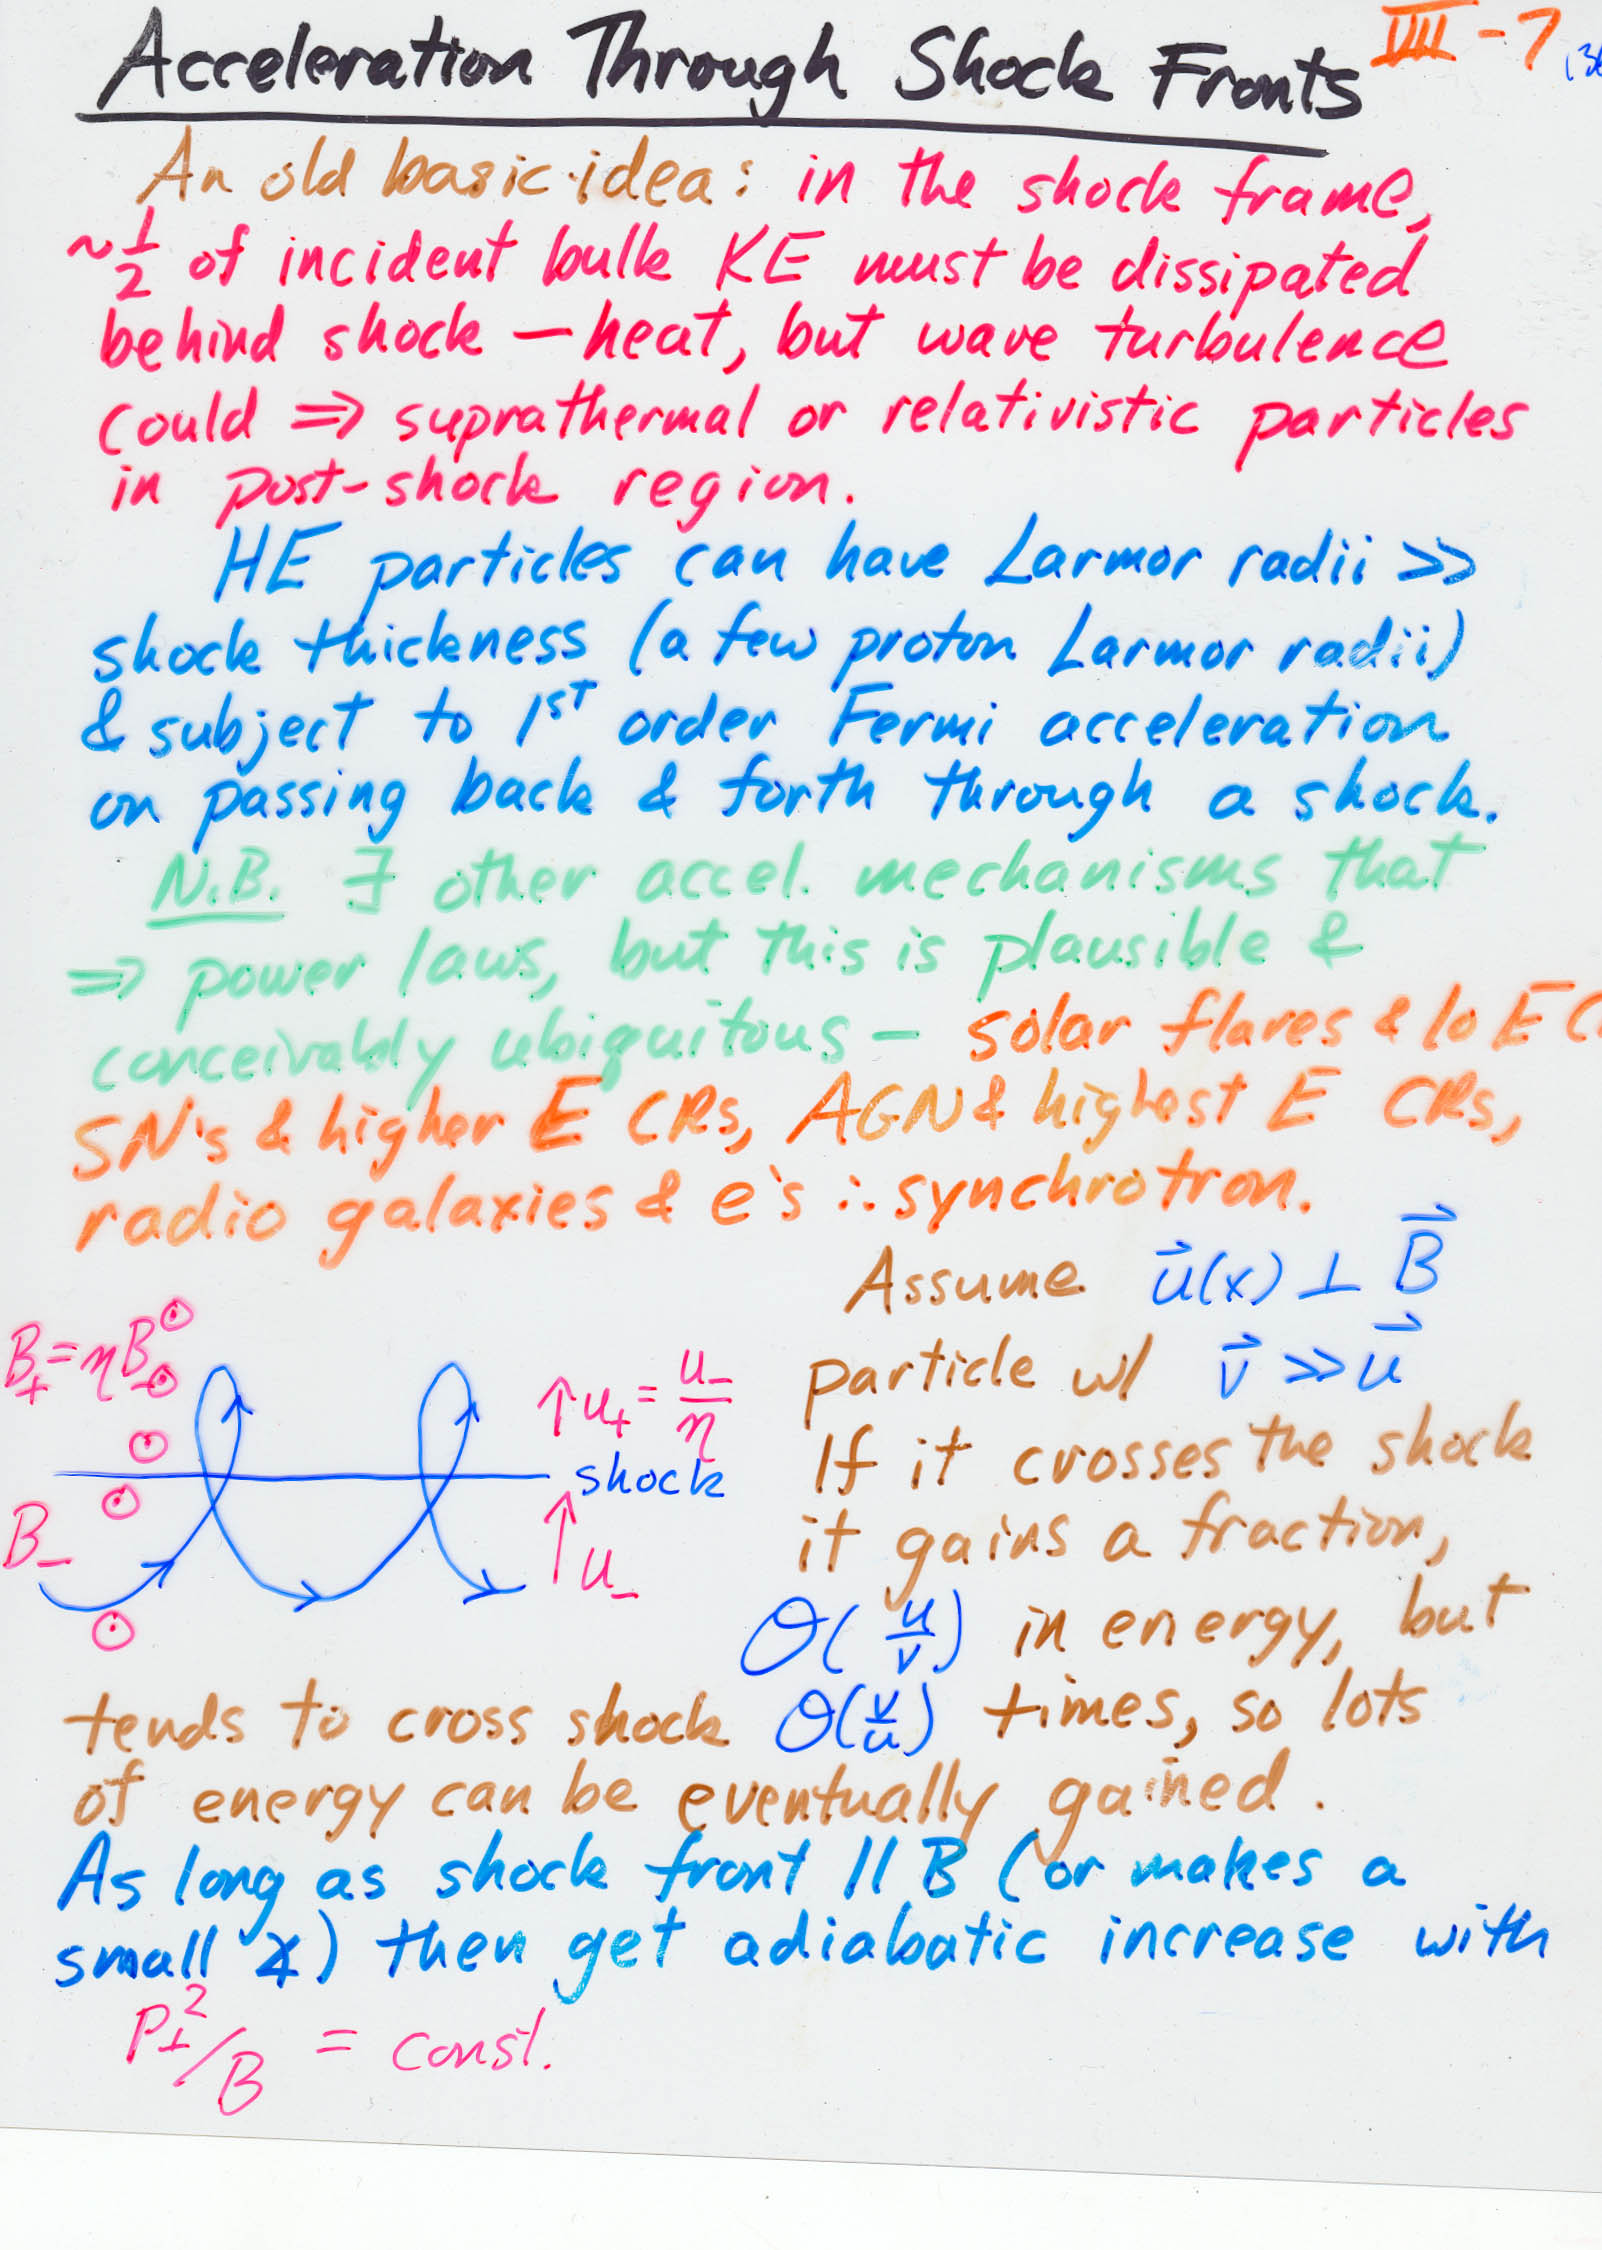 Acceleration Through Shock Fronts VIII-7
An old basic idea: in the shock frame,
~1/2 of incident bulk KE must be dissipated
behind shock — heat, but wave turbulence
could ⇒ suprathermal or relativistic particles
in post-shock region.
HE particles can have Larmor radii >>
shock thickness (a few proton Larmor radii)
& subject to 1st order Fermi acceleration
on passing back & forth through a shock.
N.B. ∃ other accel. mechanisms that
⇒ power laws, but this is plausible &
conceivably ubiquitous — solar flares & lo E
SN's & higher E CRs, AGN & highest E CRs,
radio galaxies & e's ∴ synchrotron.
Assume u⃗(x) ⊥ B⃗
particle w/ v⃗ >> u⃗
If it crosses the shock
it gains a fraction,
O(u/v) in energy, but
tends to cross shock O(v/u) times, so lots
of energy can be eventually gained.
As long as shock front || B (or makes a
small ∡) then get adiabatic increase with
P⊥²/B = const.
B₊ = ηB₋
u₊ = u₋/η
shock
B₋
u₋